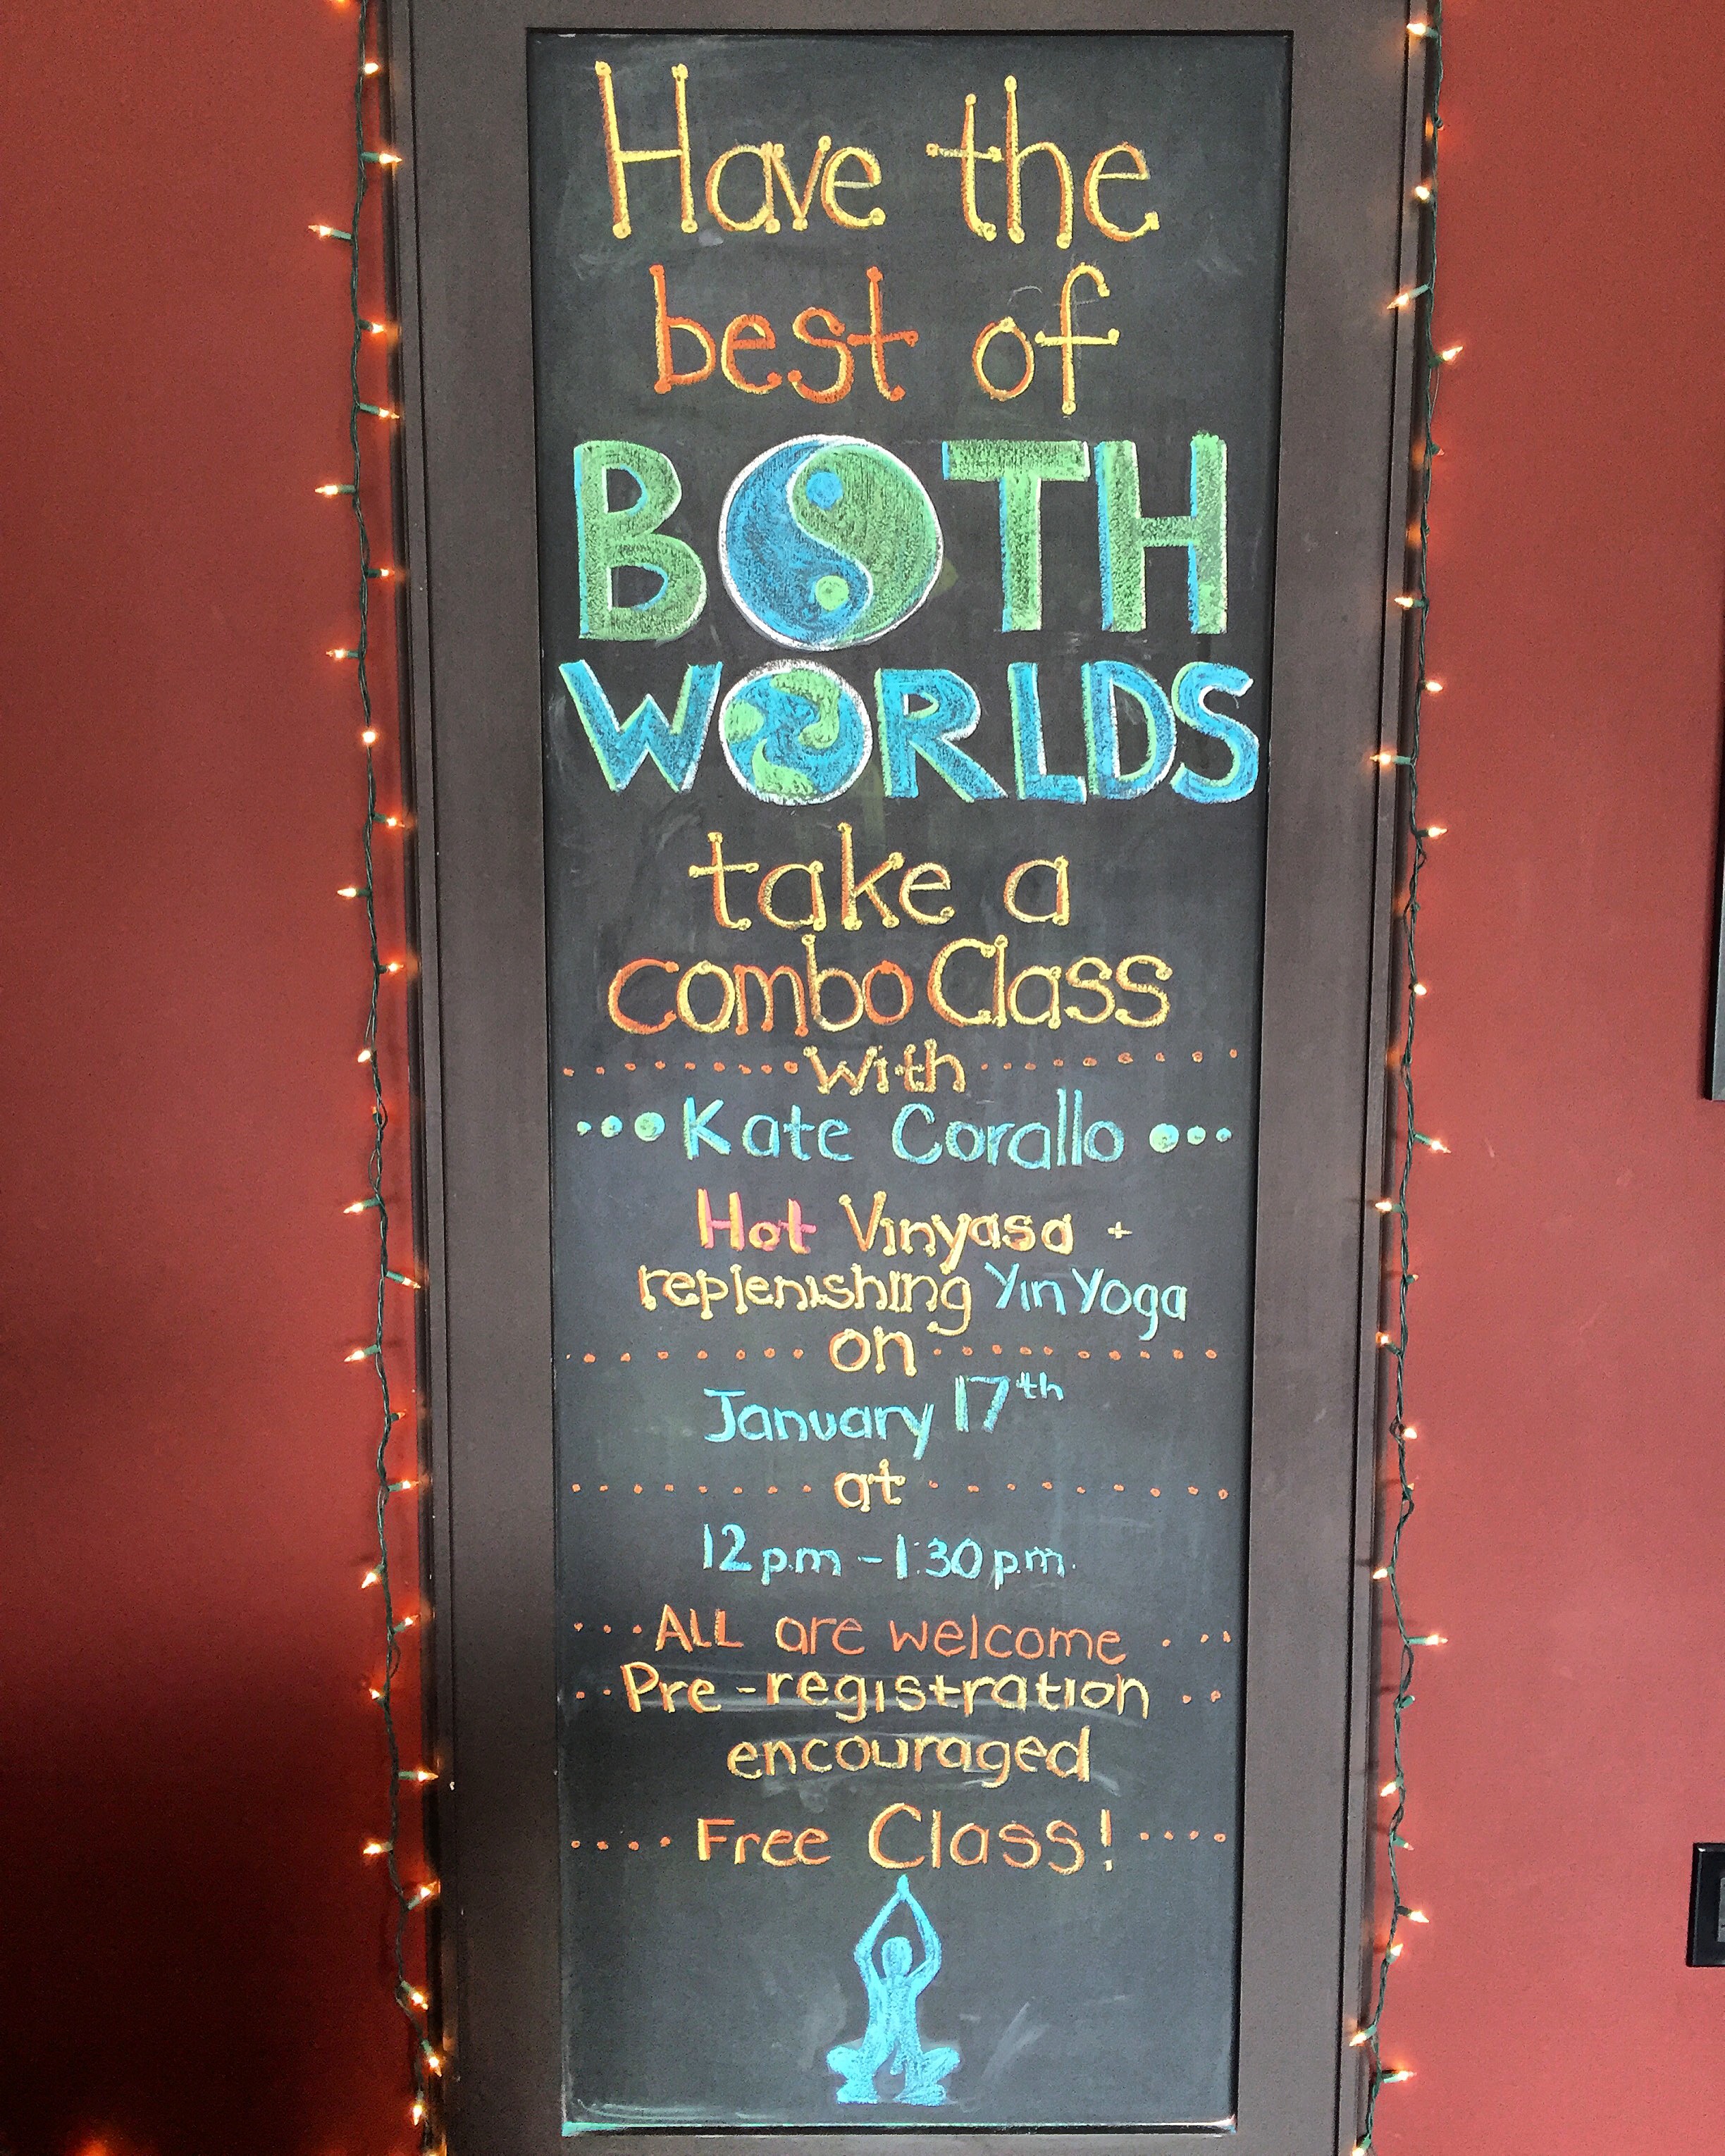 Have the
best of
BOTH
WORLDS
take a
combo Class
With
Kate Corallo
Hot Vinyasa +
replenishing Yin Yoga
on
January 17th
at
12 p.m - 1:30 p.m.
ALL are welcome
Pre-registration
encouraged
Free Class!